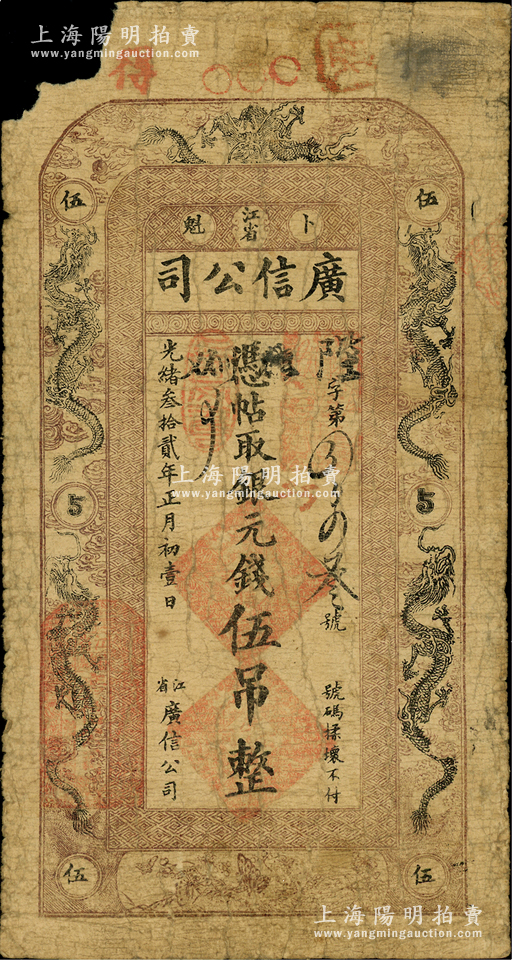 上海陽明拍賣
www.yangmingauction.com
得
伍
伍
卜
江省
魁
廣信公司
陞字第
叁號
號碼揉壞不付
憑帖取銀元錢伍吊整
光緒叁拾貳年正月初壹日
江省
廣信公司
5
5
伍
伍
上海陽明拍賣
www.yangmingauction.com
上海陽明拍賣
www.yangmingauction.com
上海陽明拍賣
www.yangmingauction.com